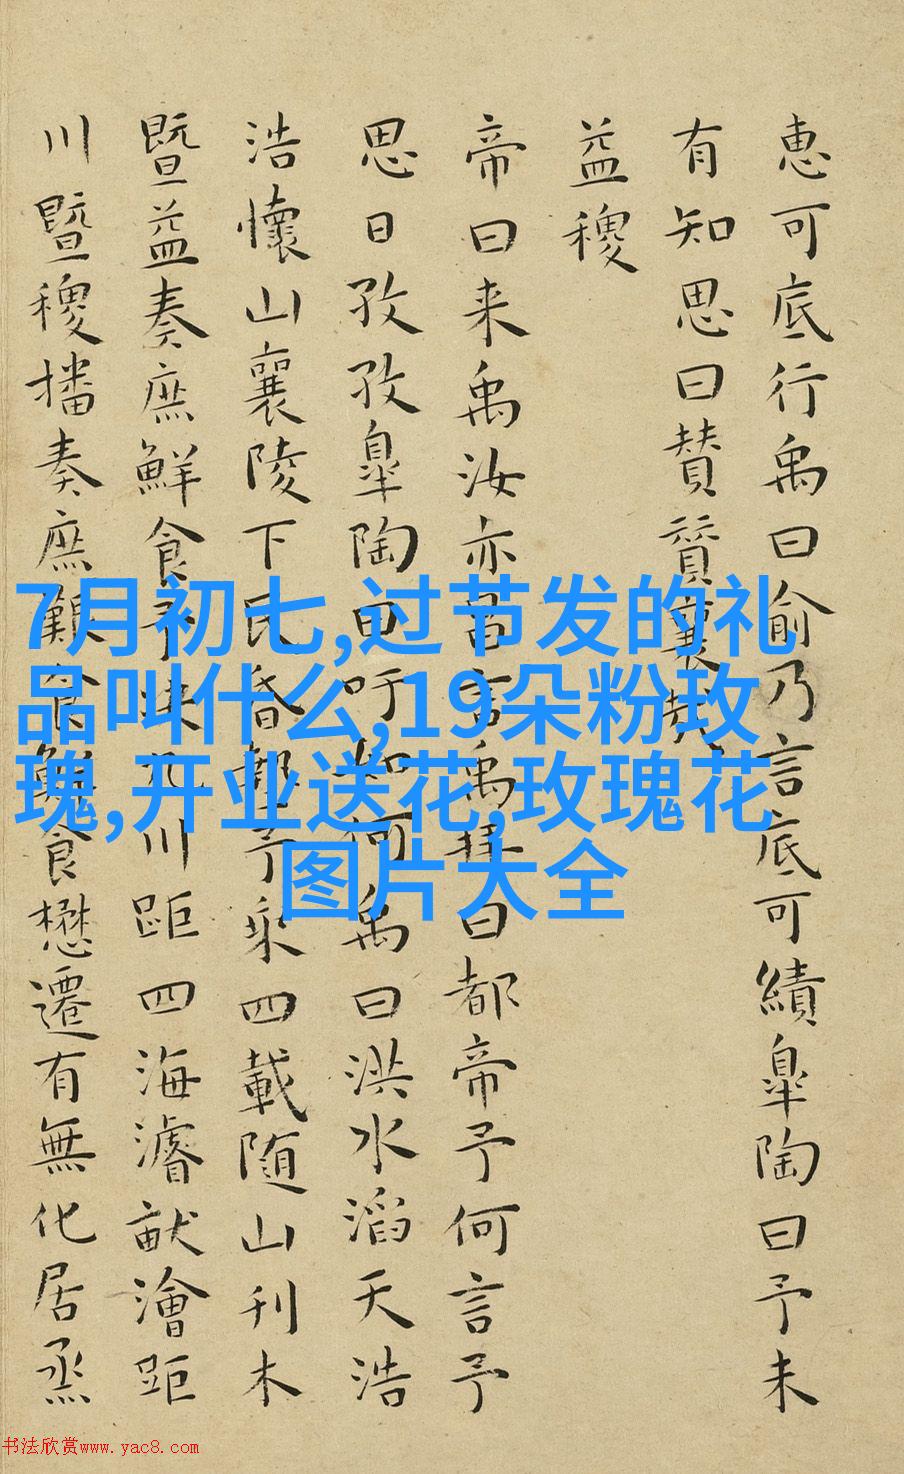 惠可底行禹曰俞乃言底可績皐陶曰予未
有知思曰賛賛襄哉
益稷
帝曰来禹汝亦昌言禹拜曰都帝予何言予
思日孜孜皐陶曰吁如何禹曰洪水滔天浩
浩懷山襄陵下民昏墊予乘四載随山刊木
暨益奏庶鮮食予決九川距四海濬畎澮距
川暨稷播奏庶艱食鮮食懋遷有無化居烝
7月初七,过节发的礼
品叫什么,19朵粉玫
瑰,开业送花,玫瑰花
图片大全
书法欣赏www.yac8.com